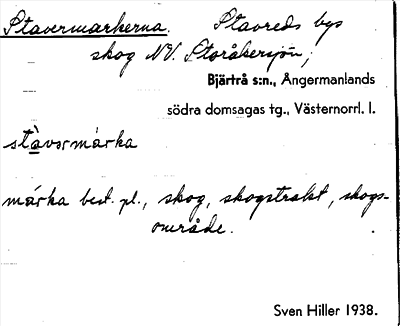 Stavermarkerna. Stavreds bys
skog NV. Storåkersjön;
Bjärtrå s:n., Ångermanlands
södra domsagas tg., Västernorrl. l.
stàvərmárka
márka best. pl., skog, skogstrakt, skogs-
område.
Sven Hiller 1938.